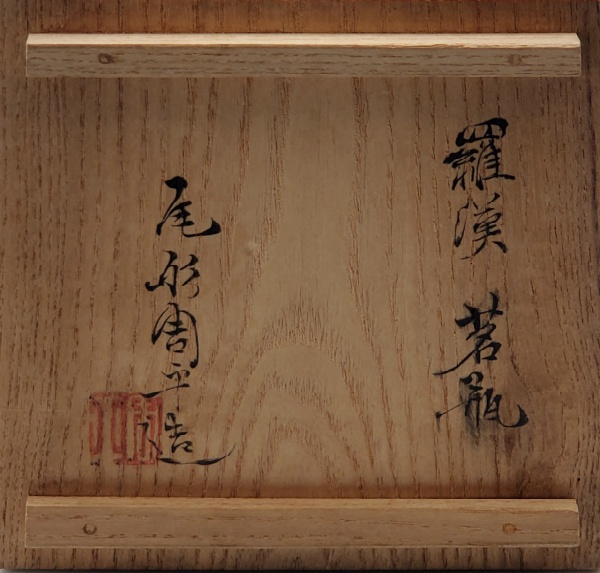 羅漢 茗瓶
尾形周平造